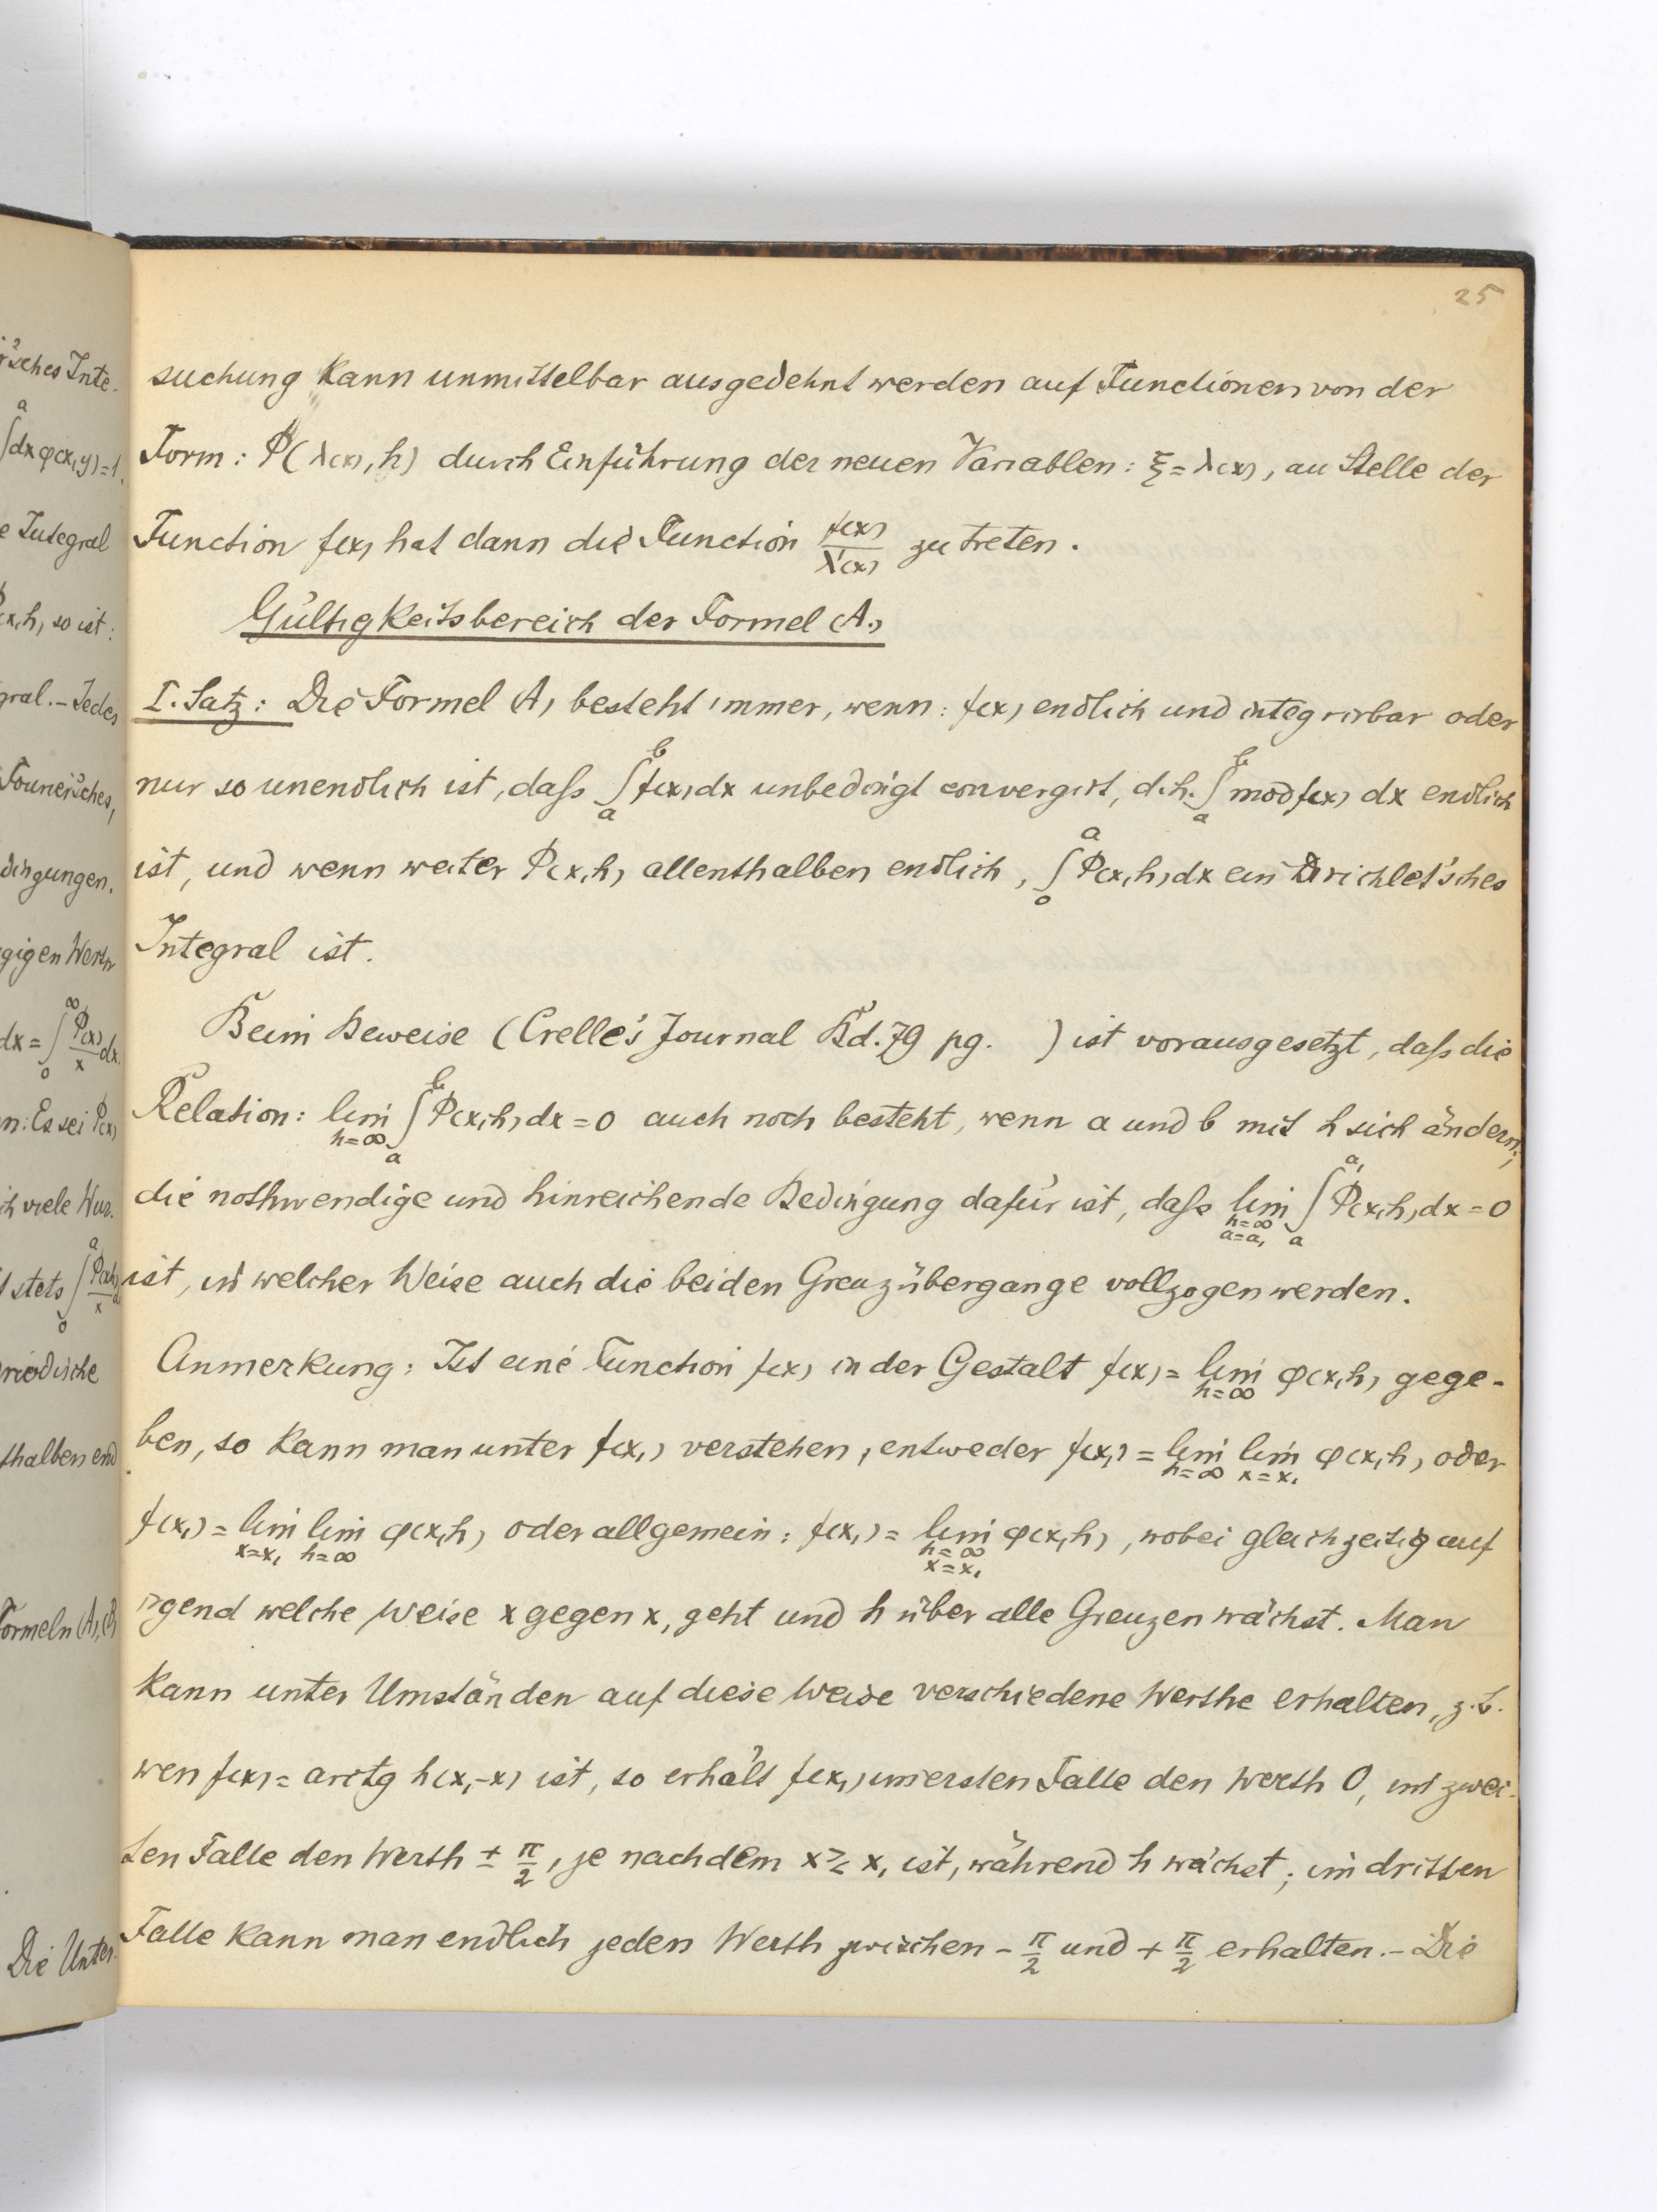 25
suchung kann unmittelbar ausgedehnt werden auf Functionen von der
Form: Φ(λ(x), h) durch Einführung der neuen Variablen: ξ = λ(x), an Stelle der
Function f(x) hat dann die Function f(x)/λ'(x) zu treten.
Gültigkeitsbereich der Formel (A.)
I. Satz: Die Formel (A) besteht immer, wenn: f(x) endlich und integrirbar oder
nur so unendlich ist, daſs ∫_a^b f(x) dx unbedingt convergirt, d.h. ∫_a^b mod f(x) dx endlich
ist, und wenn weiter Φ(x,h) allenthalben endlich, ∫_0^a Φ(x,h) dx ein Dirichlet'sches
Integral ist.
Beim Beweise (Crelle's Journal Bd. 79 pg. ) ist vorausgesetzt, daſs die
Relation: lim_{h=∞} ∫_a^b Φ(x,h) dx = 0 auch noch besteht, wenn a und b mit h sich ändern;
die nothwendige und hinreichende Bedingung dafür ist, daſs lim_{h=∞, a=a₁} ∫_a^{a₁} Φ(x,h) dx = 0
ist, in welcher Weise auch die beiden Grenzübergange vollzogen werden.
Anmerkung: Ist eine Function f(x) in der Gestalt f(x) = lim_{h=∞} φ(x,h) gege-
ben, so kann man unter f(x₁) verstehen, entweder f(x₁) = lim_{h=∞} lim_{x=x₁} φ(x,h), oder
f(x₁) = lim_{x=x₁} lim_{h=∞} φ(x,h) oder allgemein: f(x₁) = lim_{h=∞, x=x₁} φ(x,h), wobei gleichzeitig auf
irgend welche Weise x gegen x₁ geht und h über alle Grenzen wächst. Man
kann unter Umständen auf diese Weise verschiedene Werthe erhalten, z.B.
wen f(x) = arctg h(x₁-x) ist, so erhält f(x₁) im ersten Falle den Werth 0, im zwei-
ten Falle den Werth ± π/2, je nachdem x ≷ x₁ ist, während h wächst; im dritten
Falle kann man endlich jeden Werth zwischen - π/2 und + π/2 erhalten. - Die